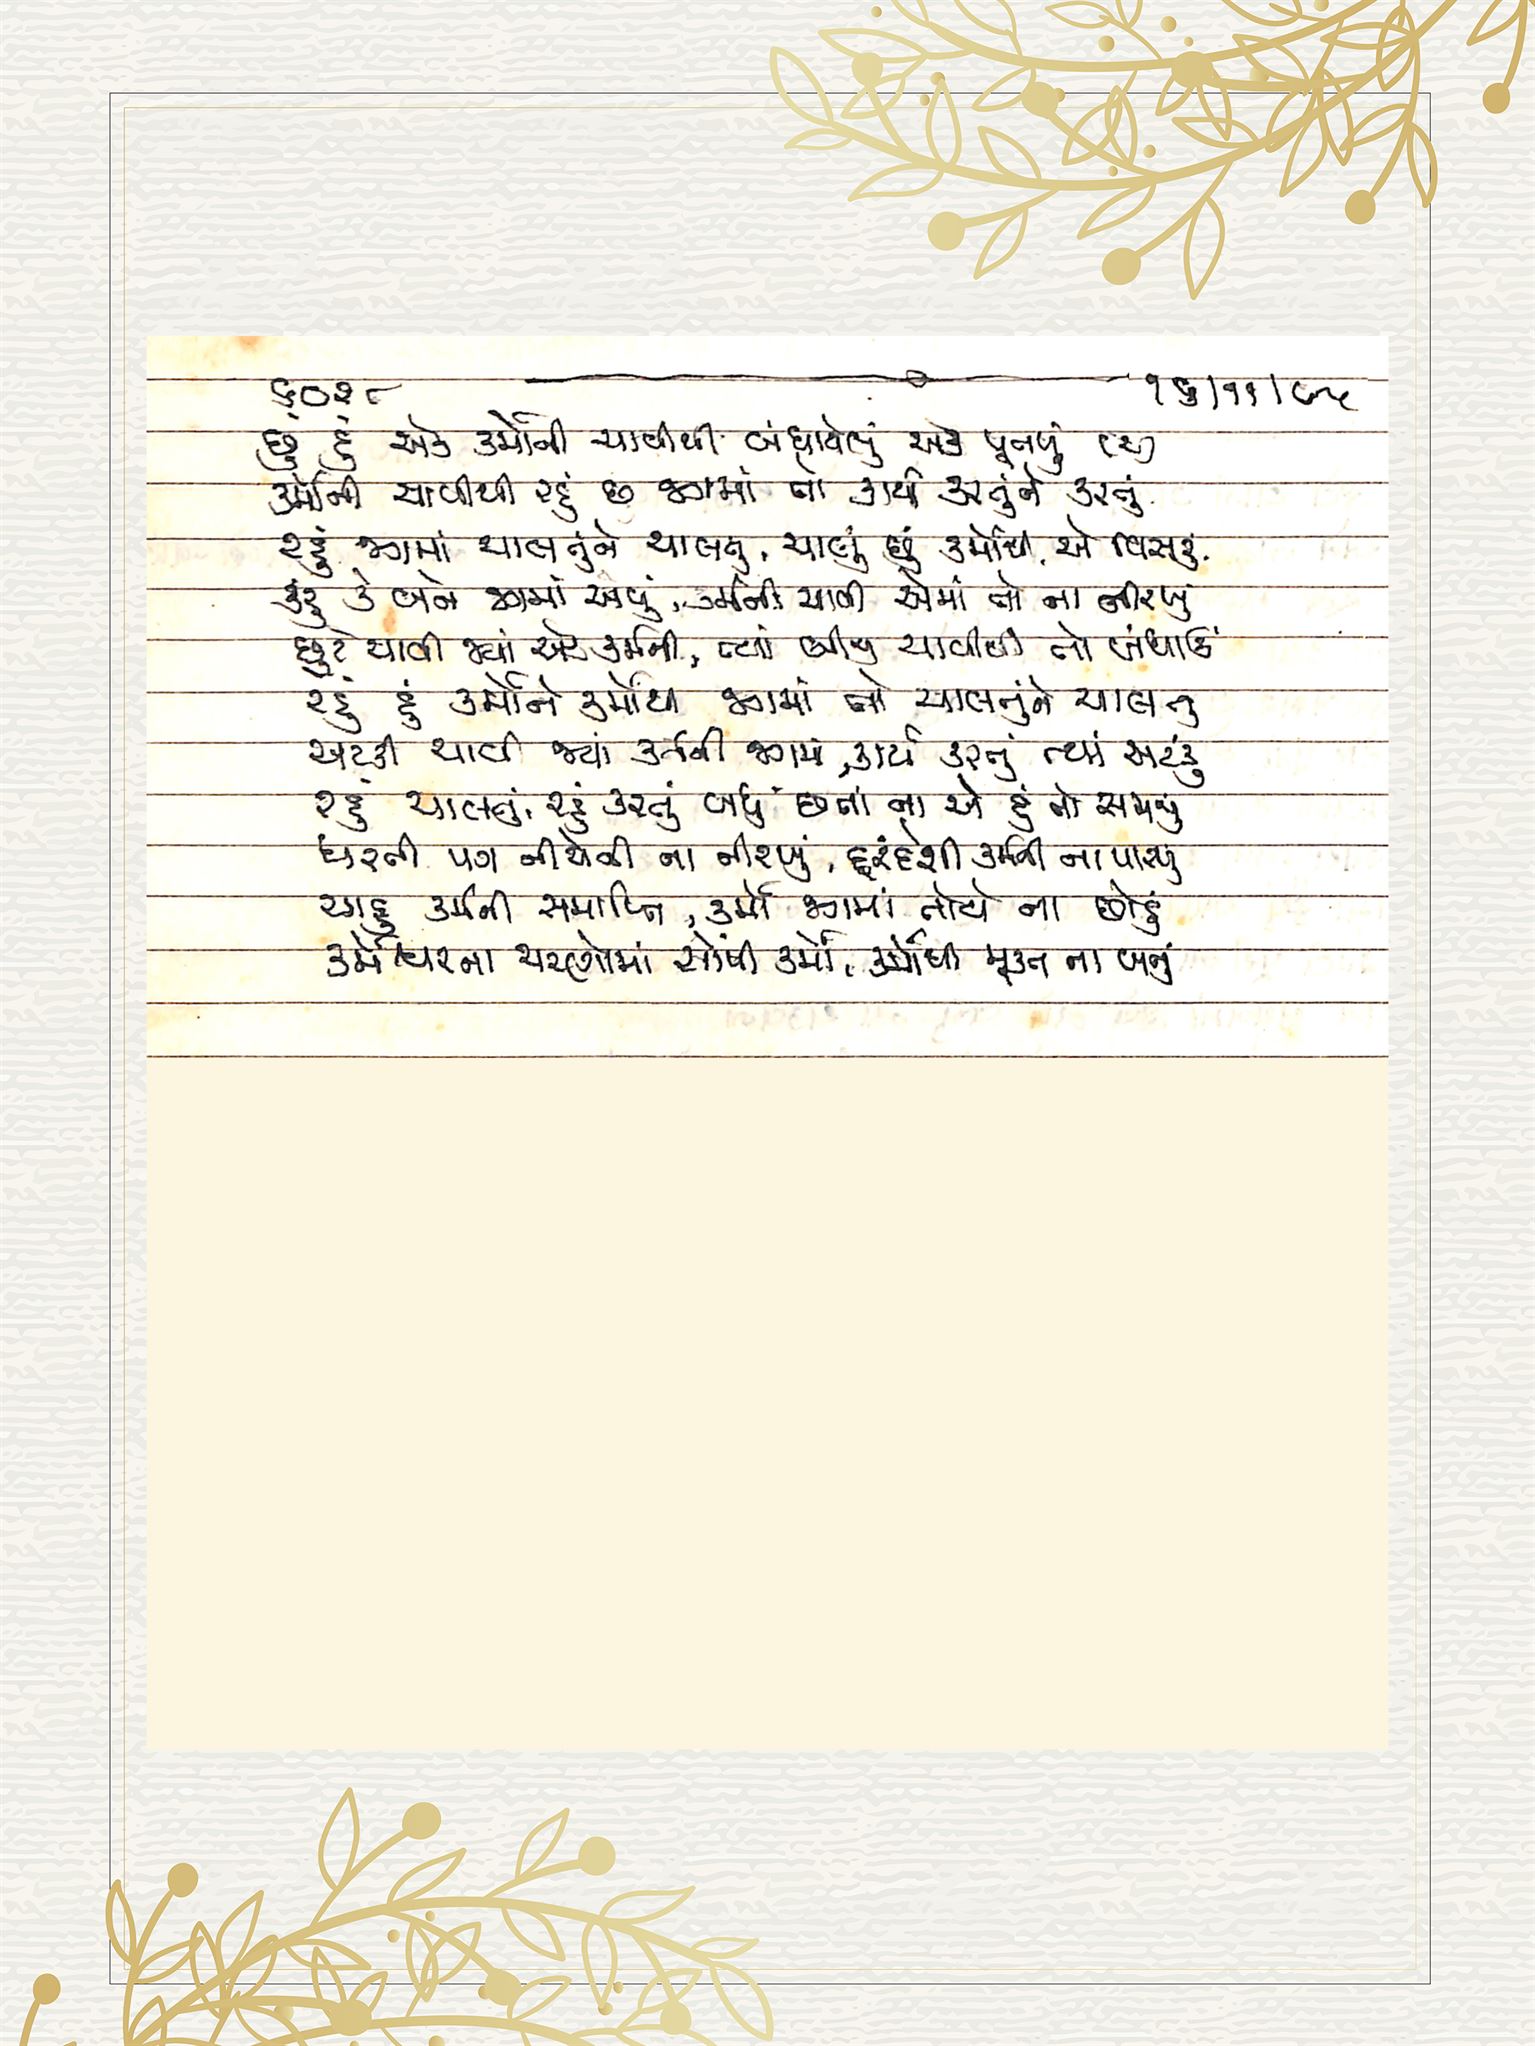 ૬૦૨૮ ૧૬/૧૧/૯૫
છું હું એક કર્મોની ચાવીથી બંધાયેલું એક પૂતળું (૨)
કર્મોની ચાવીથી રહું છ જગમાં તો કાર્ય કરતુંને કરતું
રહું જગમાં ચાલતુંને ચાલતુ, ચાલું છું કર્મોથી, એ વિસરૂં.
કરૂ કે બને જગમાં એવું, કર્મની ચાવી એમાં તો ના નીરખું
છુટે ચાવી જ્યાં એક કર્મની, ત્યાં બીજી ચાવીથી તો બંધાઉં
રહું હું કર્મોને કર્મોથી જગમાં તો ચાલતુંને ચાલતુ
અટકી ચાવી જ્યાં કર્મની જગમાં, કાર્ય કરતું ત્યાં અટકુ
રહું ચાલતું, રહું કરતું બધુ છતાં ના એ હું તો સમજુ
ઘરની પગ નીચેની ના નીરખું, દૂરંદેશી કર્મની ના પારખુ
ચાહુ કર્મની સમાપ્તિ, કર્મો જગમાં તોયે ના છોડું
કર્મેશ્વરના ચરણોમાં સોંપી કર્મો, કર્મોથી મૂક્ત ના બનું